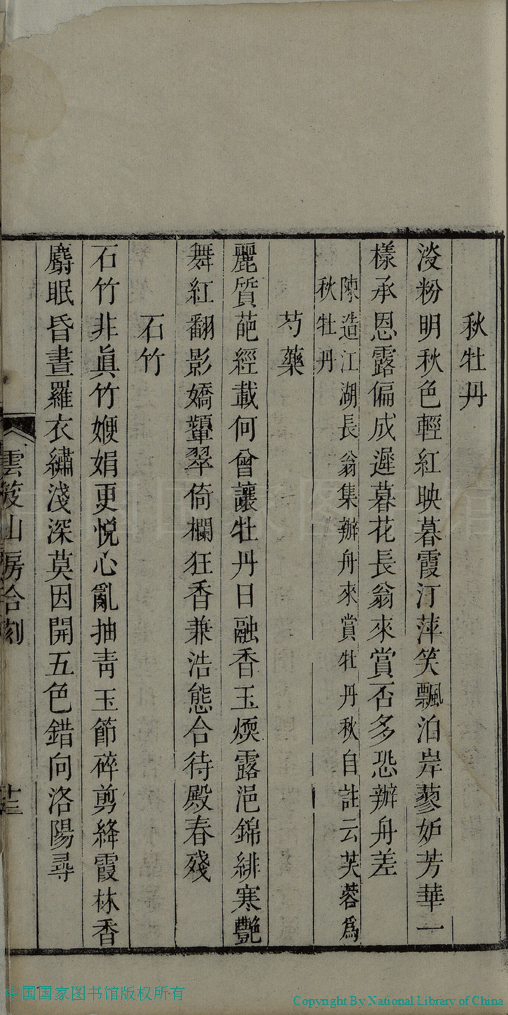 秋牡丹
淡粉明秋色輕紅映暮霞汀萍笑飄泊岸蓼妒芳華一
樣承恩露偏成遲暮花長翁來賞否多恐辦舟差
陳造江湖長翁集辦舟來賞牡丹秋自註云芙蓉爲
秋牡丹
芍藥
麗質葩經載何曾讓牡丹日融香玉煖露浥錦緋寒艷
舞紅翻影嬌顰翠倚欄狂香兼浩態合待殿春殘
石竹
石竹非眞竹㛹娟更悅心亂抽靑玉節碎剪絳霞林香
麝眠昏晝羅衣繡淺深莫因開五色錯向洛陽尋
雲笈山房合刻
廿三
中国国家图书馆版权所有
Copyright By National Library of China